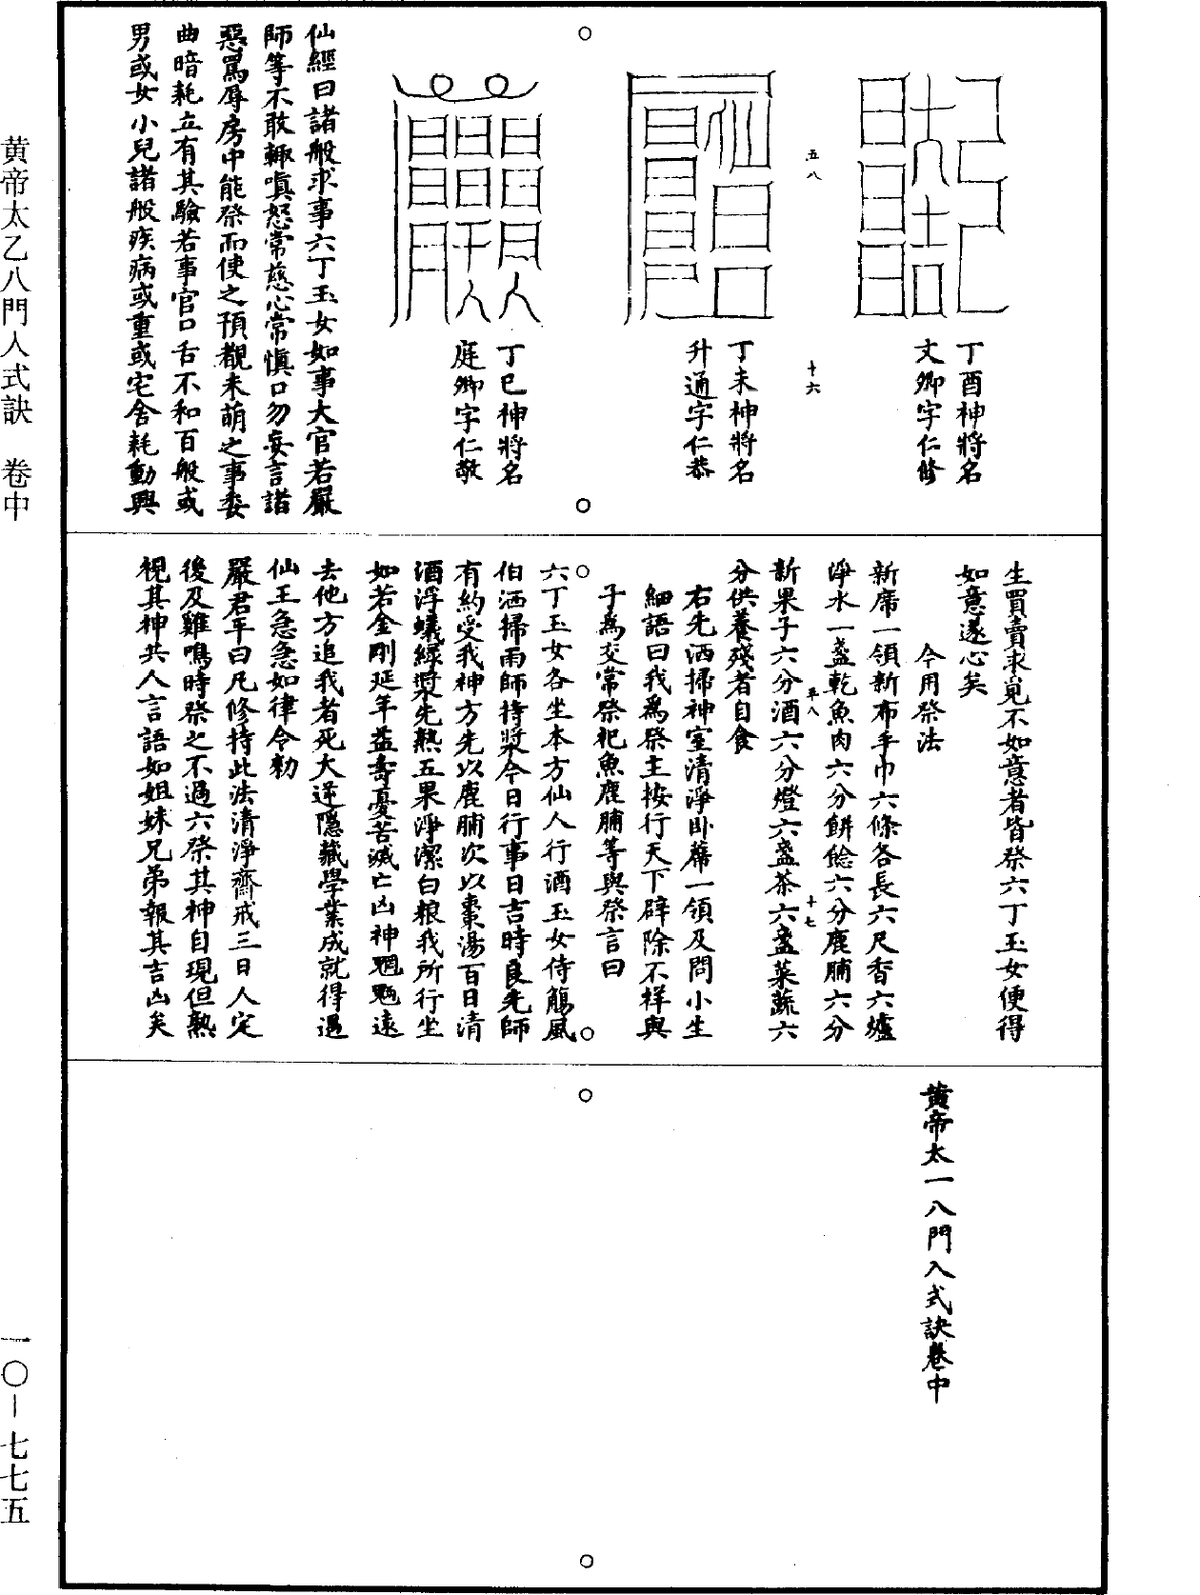 丁酉神將名
文卿字仁脩
五八
十六
丁未神將名
升通字仁恭
丁巳神將名
庭卿字仁敬
仙經曰諸般求事六丁玉女如事大官若嚴
師等不敢輙嗔怒常慈心常慎口勿妄言諸
惡罵辱房中能祭而使之預覩未萌之事委
曲暗耗立有其驗若事官口舌不和百般或
男或女小兒諸般疾病或重或宅舍耗動興
生買賣求覓不如意者皆祭六丁玉女便得
如意遂心矣
今用祭法
新席一領新布手巾六條各長六尺香六爐
淨水一盞乾魚肉六分餅餤六分鹿脯六分
平八
十七
新果子六分酒六分燈六盞茶六盞菜蔬六
分供養殘者自食
右先洒掃神室清淨卧蓆一領及問小生
細語曰我為祭主按行天下辟除不祥與
子為交常祭祀魚鹿脯等與祭言曰
六丁玉女各坐本方仙人行酒玉女侍觴風
伯洒掃雨師持漿今日行事日吉時良先師
有約受我神方先以鹿脯次以棗湯百日清
酒浮蟻綠漿先熟五果淨潔白粮我所行坐
如若金剛延年益壽憂苦滅亡凶神魍魎遠
去他方追我者死大逆隱藏學業成就得遇
仙王急急如律令勅
嚴君平曰凡修持此法清淨齋戒三日人定
後及雞鳴時祭之不過六祭其神自現但熟
視其神共人言語如姐妹兄弟報其吉凶矣
黃帝太一八門入式訣卷中
黄帝太乙八門入式訣　卷中
一〇－七七五